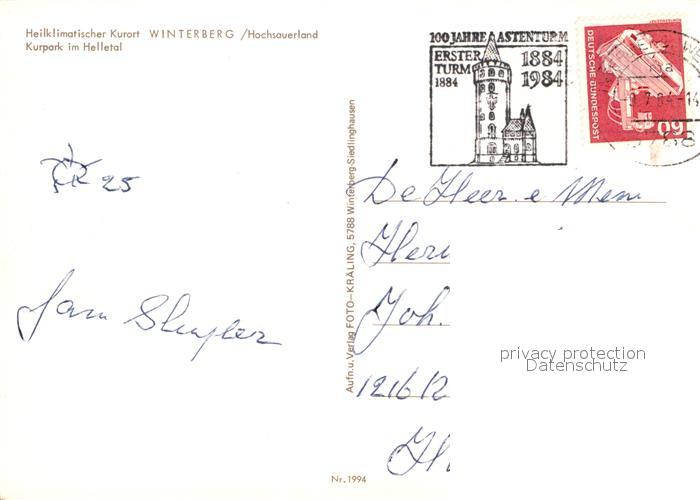 Heilklimatischer Kurort WINTERBERG /Hochsauerland
Kurpark im Helletal
100 JAHRE ASTENTURM
ERSTER TURM 1884
1884
1984
DEUTSCHE BUNDESPOST
60
25
Aufn.u.Verlag FOTO-KRÄLING, 5788 Winterberg-Siedlinghausen
De Heer e Mevr
Joh.
1216
privacy protection
Datenschutz
Nr. 1994